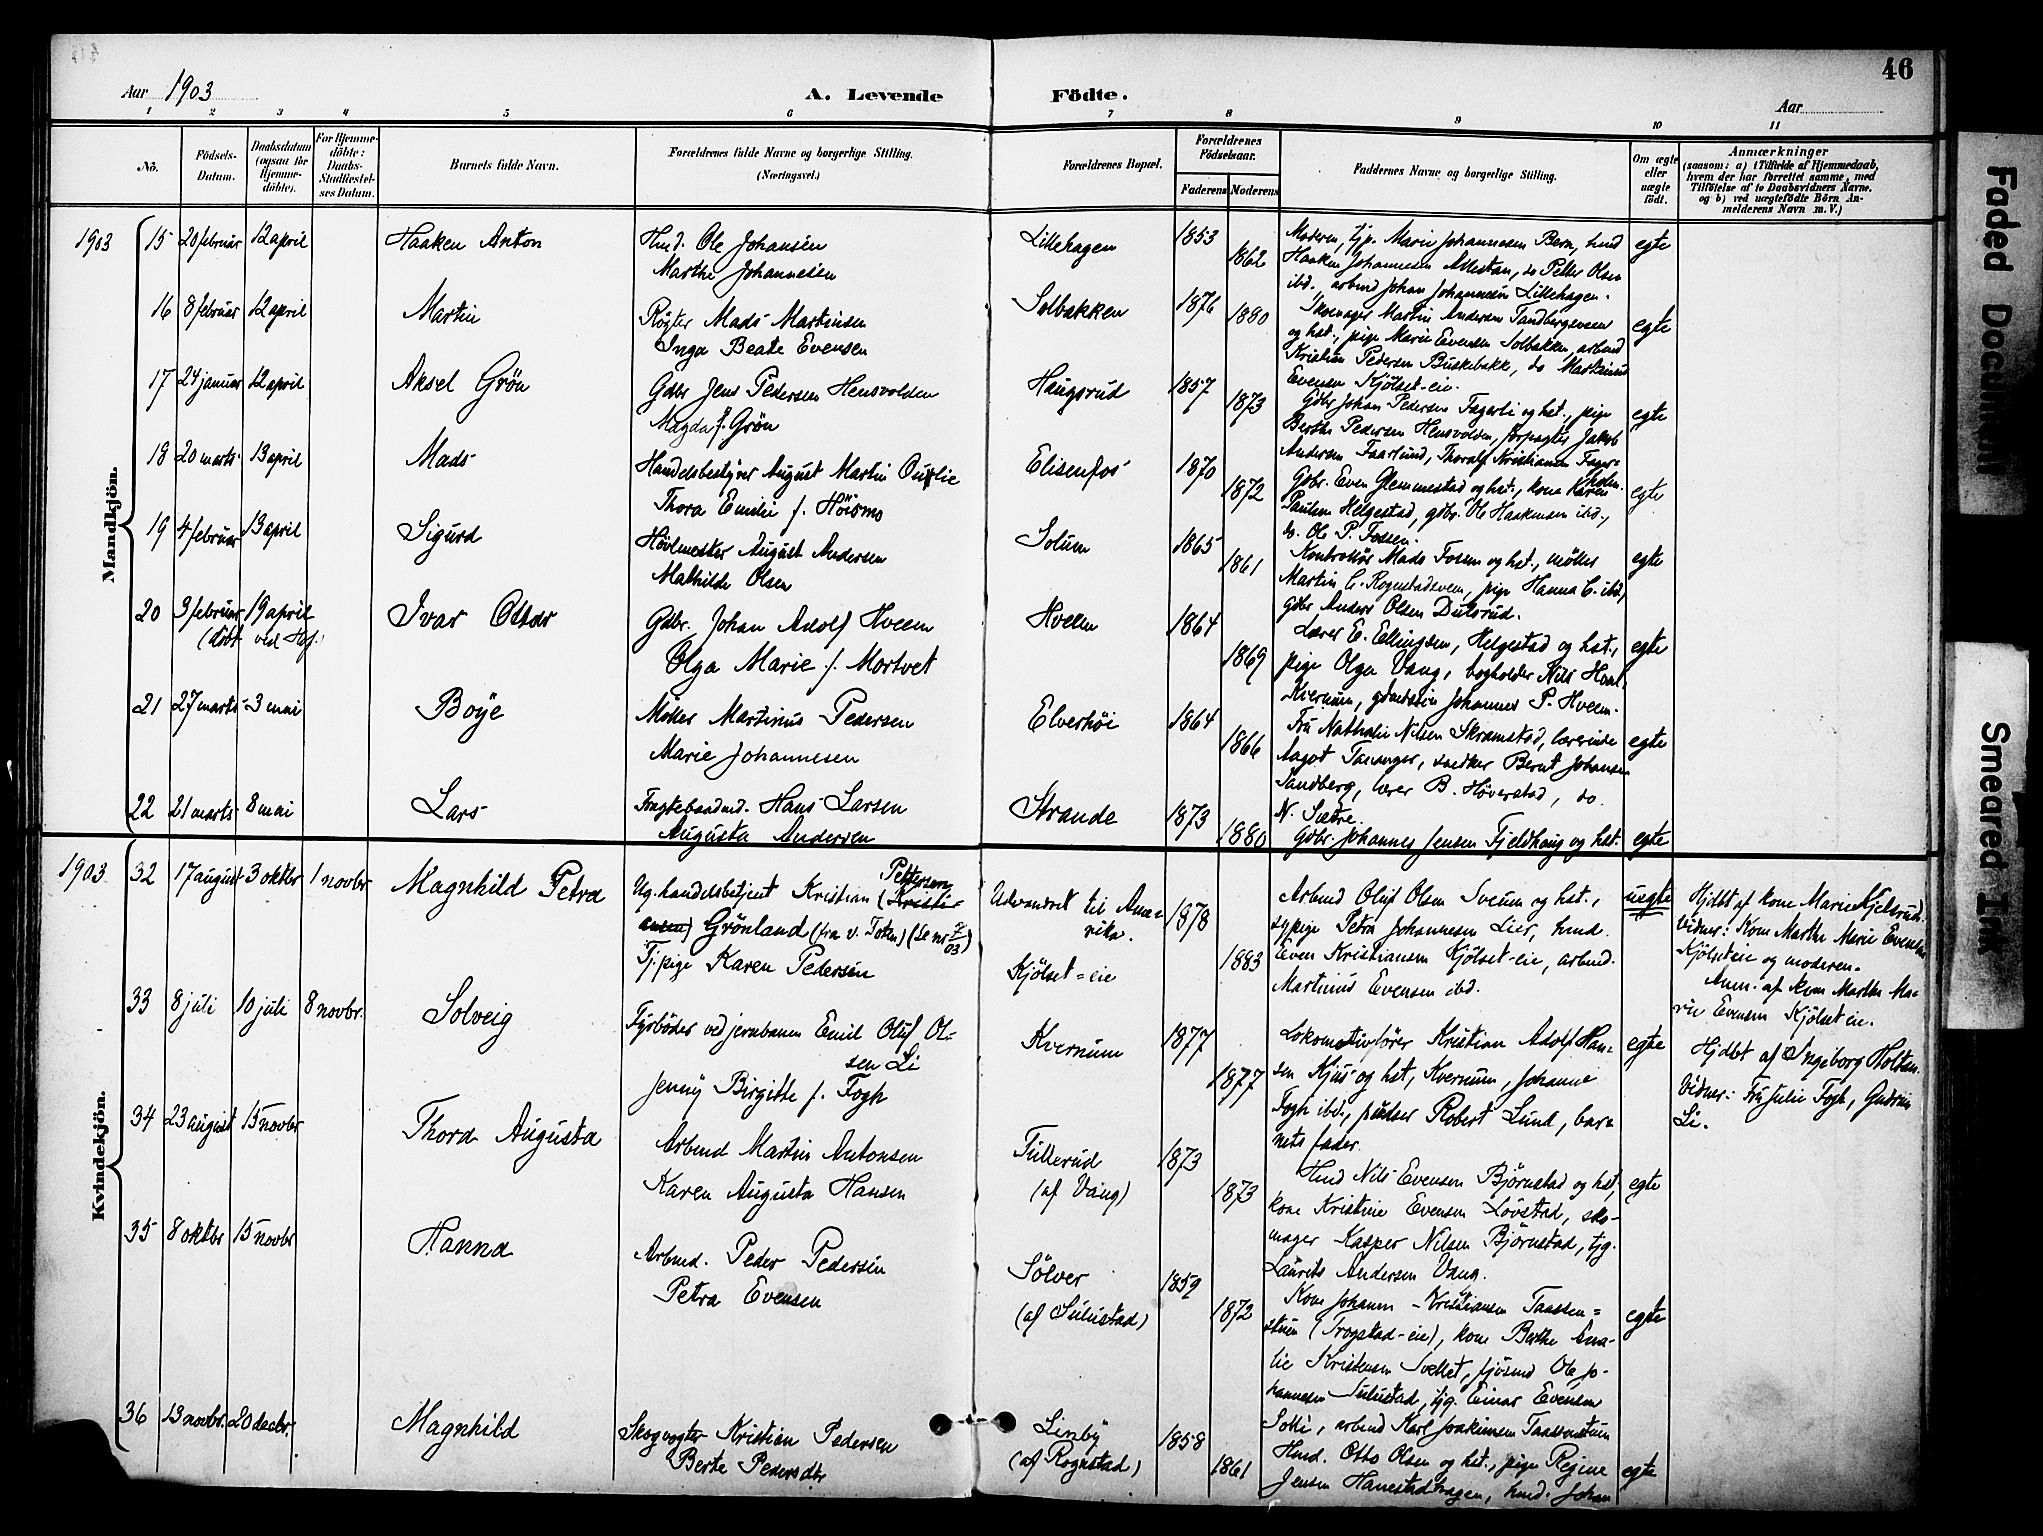 46
Aar 1903 A. Levende Födte. Aar
1 2 3 4 5 6 7 8 9 10 11
No.
Födsels-Datum.
Daabsdatum (ogsaa for Hjemmedöbte).
For Hjemmedöbte: Daabs-Stadfæstelses Datum.
Barnets fulde Navn.
Forældrenes fulde Navne og borgerlige Stilling. (Næringsvei.)
Forældrenes Bopæl.
Forældrenes Födselsaar.
Faderens Moderens
Faddernes Navne og borgerlige Stilling.
Om ægte eller uægte født.
Anmærkninger
(saasom: a) i Tilfælde af Hjemmedaab,
hvem der har forrettet samme, med
Tilföielse af to Daabsvidners Navne,
og b) ved uægtefödte Börn An-
melderens Navn m. V.)
Mandkjön.
1903 15 20 februar 12 april Haaken Anton
Hmd. Ole Johansen
Marthe Johannesen
Lillehagen 1853 1862
Moderen, tjp. Marie Johannesen Bern, hmd
Haaken Johannesen Allestan, do Petter Olsen
ibd., arbmd Johan Johannesen Lillehagen.
egte
16 8 februar 12 april Martin
Røgter Mads Martinsen
Inga Beate Evensen
Solbakken 1876 1880
Skomager Martin Andersen Sandbergsveen
og hst., pige Marie Evensen Solbakken, arbmd
Kristian Pedersen Buskebakk, do Martinus
Evensen Kjölset-eie.
egte
17 24 januar 12 april Aksel Grön
Gdbr Jens Pedersen Hensvolden
Magda f. Grön
Haugsrud 1857 1873
Gdbr Johan Pedersen Fagerli og hst., pige
Berthe Pedersen Hensvolden, forpagter Jakob
Andersen Faarlund, Thoralf Kristiansen Fager-
holm.
egte
18 20 marts 13 april Mads
Handelsbestyrer August Martin Ourlie
Thora Emilie f. Höismo
Elisenfos 1870 1872
Gdbr. Even Glemmestad og hst., kona Karen
Paulsen Helgestad, gdbr. Ole Haakensen ibd.,
do. Ole P. Fossen.
egte
19 4 februar 13 april Sigurd
Hövlmester August Andersen
Mathilde Olsen
Solum 1865 1861
Kontrollör Mads Fossen og hst., möller
Martin C. Rognstadsveen, pige Hanna C. ibd.,
gdbr Anders Olsen Dulsrud.
egte
20 9 februar 19 april Ivar Ottar
(döbt ved Hof.)
Gdbr. Johan Adolf Hveem
Olga Marie f. Mortvet
Hveem 1864 1869
Lærer E. Ellingsen, Helgestad og hst.,
pige Olga Vang, bogholder Nils Hval,
Kvernum, gdmdssøn Johannes P. Hveem.
egte
21 27 marts 3 mai Böye
Möller Martinus Pedersen
Marie Johannesen
Elverhöi 1864 1866
Fru Nathalie Nilsen Skramstad, lærerinde
Aagot Tananger, snedker Bernt Johansen
Sandberg, lærer B. Höverstad, do.
N. Sætre.
egte
22 21 marts 8 mai Lars
Fragtebaadmd. Hans Larsen
Augusta Andersen
Strande 1873 1880
Gdbr. Johannes Jensen Fjeldhaug og hst.
egte
Kvindekjön.
1903 32 17 august 3 oktbr 1 novbr Magnhild Petra
Pettersen
Ug. handelsbetjent Kristian (Kristi-
ansen) Grönland (fra v. Toten) (se nr 7/03)
Tj.pige Karen Pedersen
Udvandret til Ame-
rika.
Kjölset-eie
1878 1883
Arbmd Oluf Olsen Sveum og hst.,
sypige Petra Johannesen Lier, hmd.
Even Kristiansen Kjölset-eie, arbmd.
Martinus Evensen ibd.
uegte
Hjdbt af kone Marie Kjelsrud.
Vidner: Kone Marthe Marie Evensen
Kjölseteie og moderen.
Anm. af kone Marthe Ma-
rie Evensen Kjölset eie.
33 8 juli 10 juli 8 novbr. Solveig
Fyrböder ved jernbanen Emil Oluf Ol-
sen Li
Jenny Birgitte f. Fogh
Kvernum 1877 1877
Lokomotivförer Kristian Adolf Han-
sen Kjus og hst, Kvernum, Johanne
Fogh ibd., pudser Robert Lund, bar-
nets fader.
egte
Hjdbt af Ingeborg Holtan.
Vidner: Fru Julie Fogh, Gudrun
Li.
34 23 august 15 novbr Thora Augusta
Arbmd Martin Antonsen
Karen Augusta Hansen
Tullerud
(af Vang)
1873 1873
Hmd Nils Evensen Björnstad og hst,
kone Kristine Evensen Lövstad, sko-
mager Kasper Nilsen Björnstad, tjg.
Laurits Andersen Vang.
egte
35 8 oktbr 15 novbr Hanna
Arbmd. Peder Pedersen
Petra Evensen
Sölver
(af Sulustad)
1859 1872
Kone Johanne Kristiansen Taassen-
stuen (Trogstad-eie), kone Berthe Ama-
lie Kristensen Svellet, fjösmd Ole Jo-
hannesen Sulustad, tjg. Einar Evensen
Solli, arbmd Karl Joakimsen Taassenstuen
egte
36 13 novbr. 20 decbr. Magnhild
Skogvogter Kristian Pedersen
Berte Pedersdtr
Linby
(af Rognstad)
1858 1861
Hmd. Otto Olsen og hst., pige Regine
Jensen Hanestadhagen, hmd. Johan
egte
Faded Document
Smeared Ink